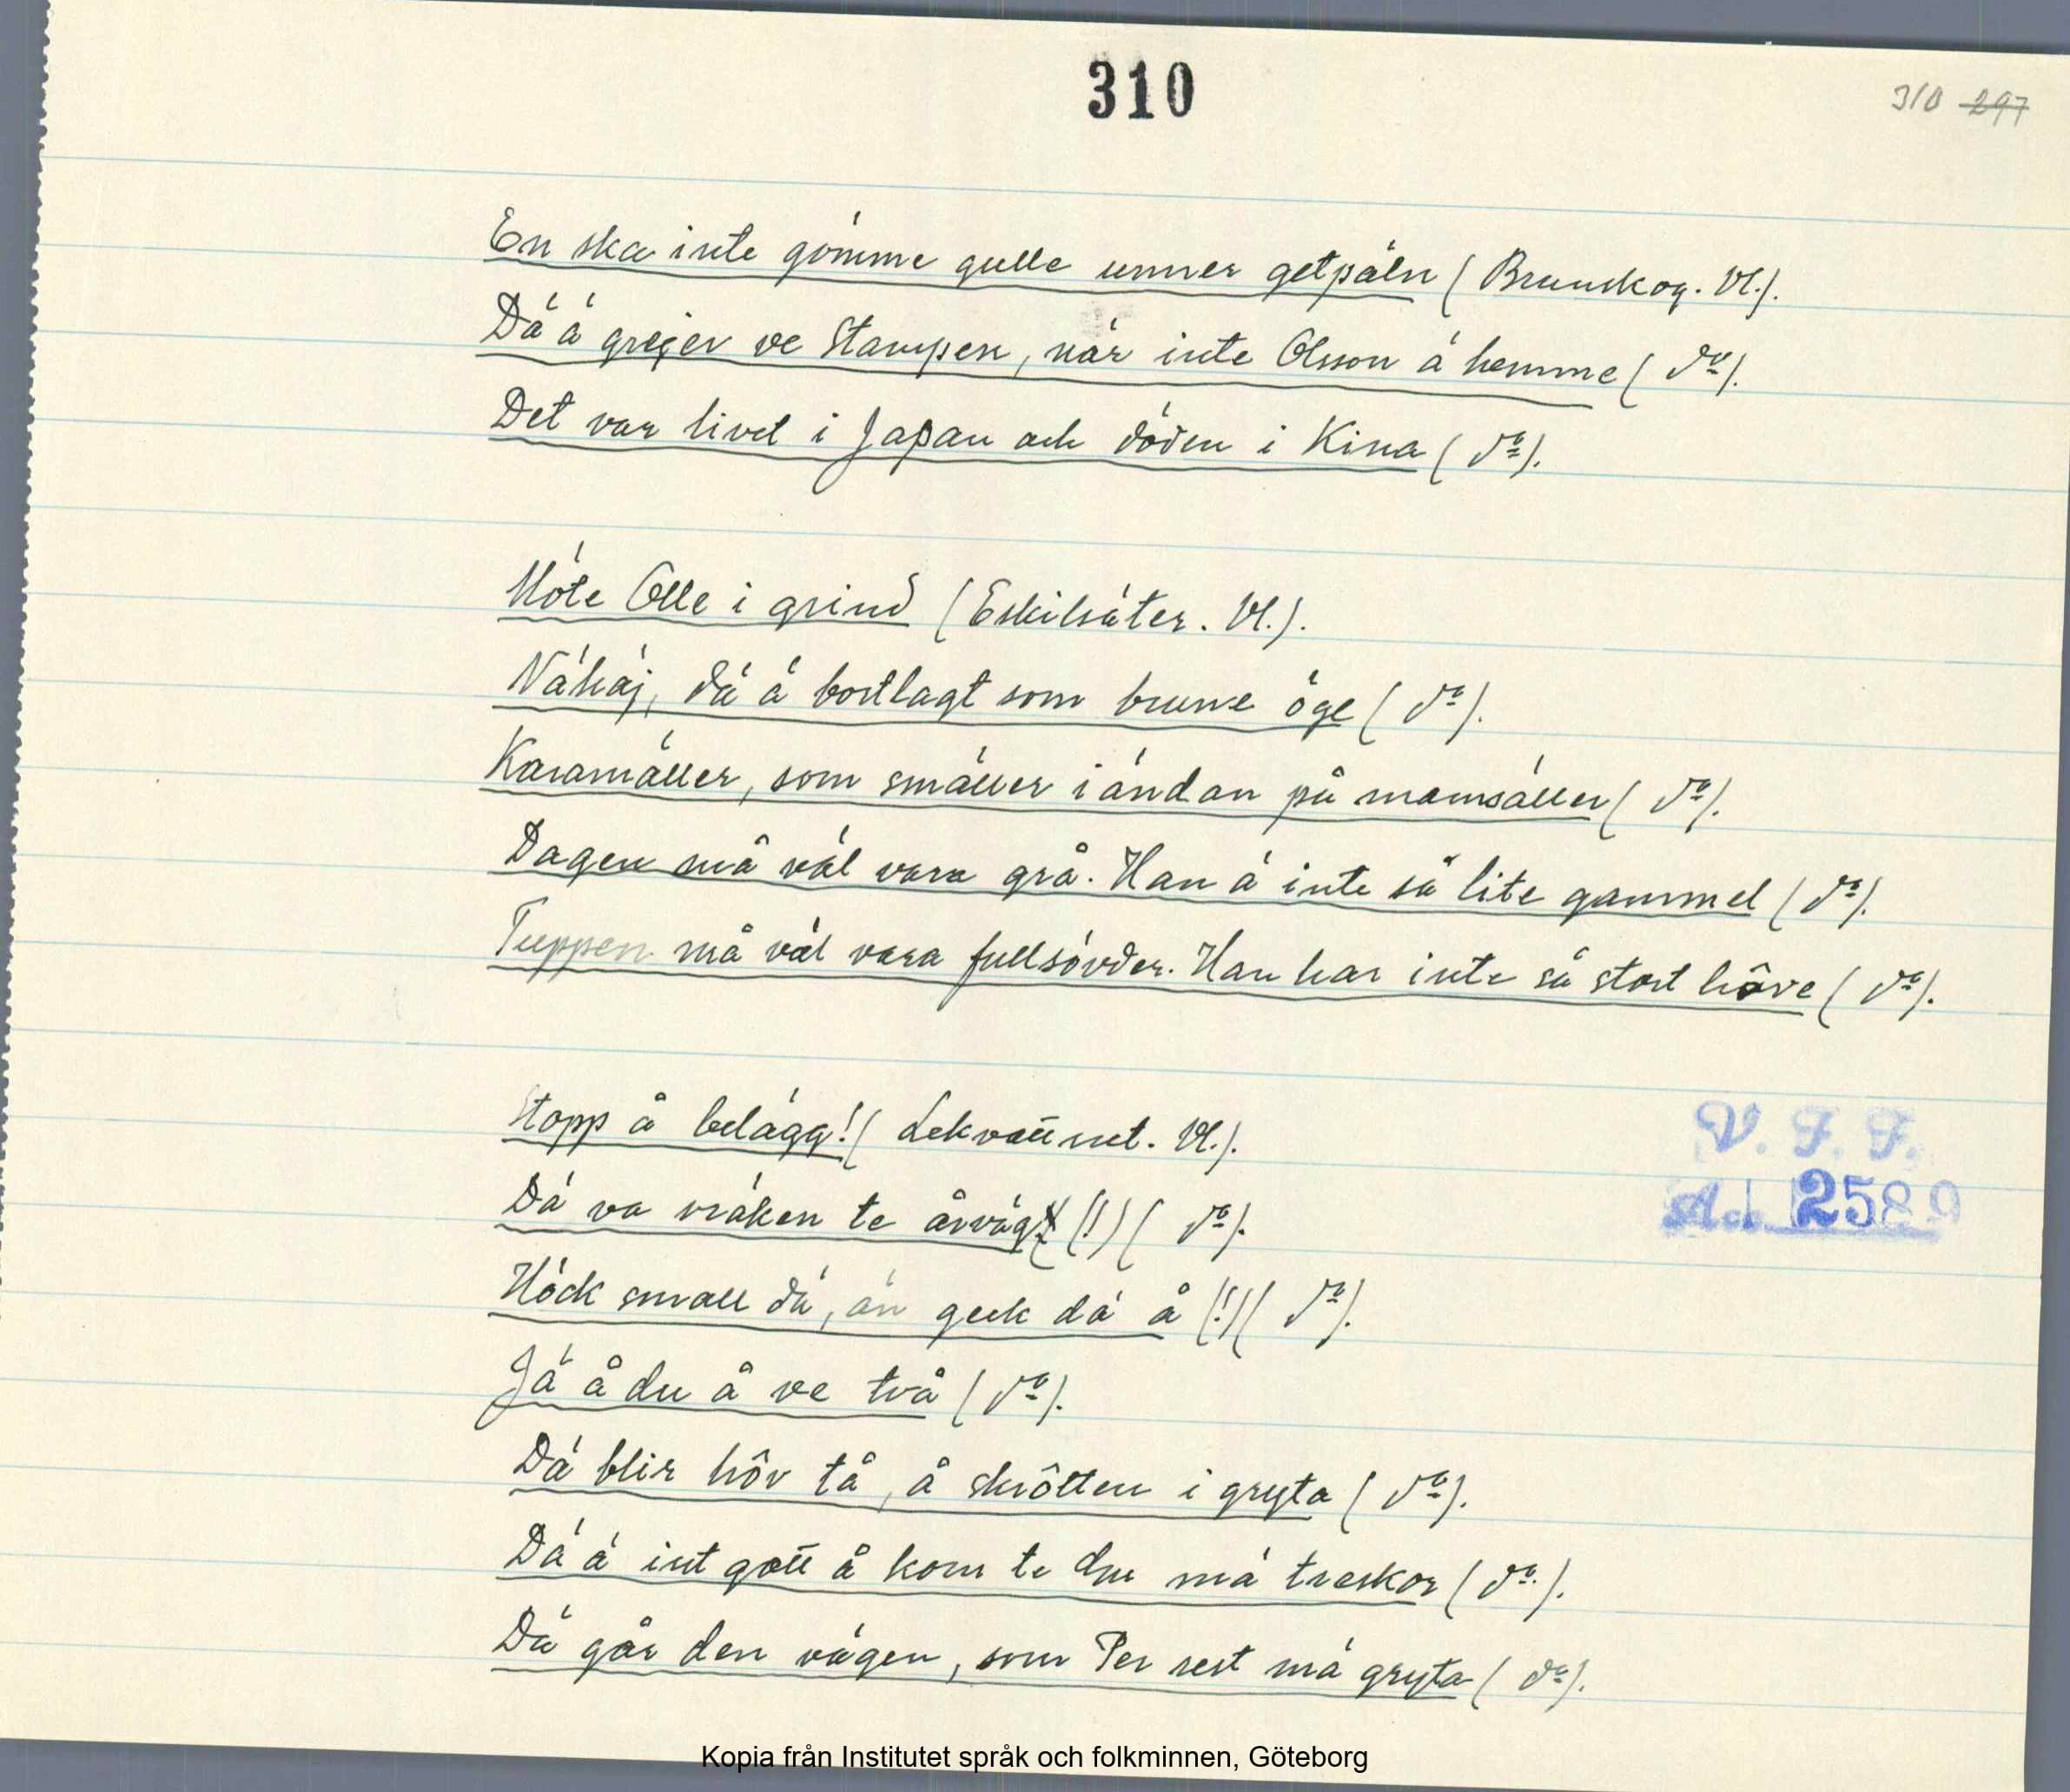 310
310 297
En ska inte gömme gulle unner getpäln (Brunskog. Vl.).
Dä ä grejer ve Stampen, när inte Olsson ä hemme (do).
Det var livet i Japan och döden i Kina (do).
Möte Olle i grind (Eskilsäter. Vl.).
Nähäj, dä ä bortlagt som brune öge (do).
Karamäller, som smäller i ändan på mamsäller (do).
Dagen må väl vara grå. Han ä inte så lite gammel (do).
Tuppen må väl vara fullsövder. Han har inte så stort hôve (do).
Stopp å belägg! (Lekvattnet. Vl.).
Dä va vräken te årväg (!) (do).
Höck small dä, än geck dä å (!) (do).
Jä å du å ve två (do).
Dä blir hôv tå, å skrôtten i gryta (do).
Dä ä int gott å kom te dm mä treskor (do).
Dä går den vägen, som Per rest mä gryta (do).
V. F. F.
Acc 2589
Kopia från Institutet språk och folkminnen, Göteborg